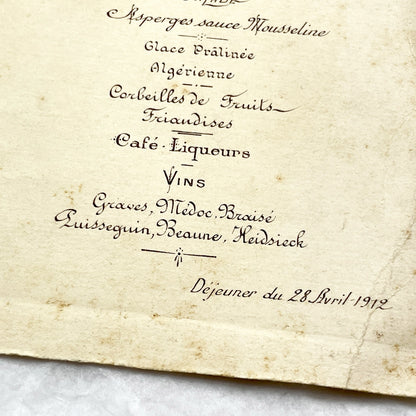 Asperges sauce Mousseline
Glace Prâlinée
Algérienne
Corbeilles de Fruits
Friandises
Café - Liqueurs
Vins
Graves, Médoc, Braisé
Puisseguin, Beaune, Heidsieck
Déjeuner du 28 Avril 1912